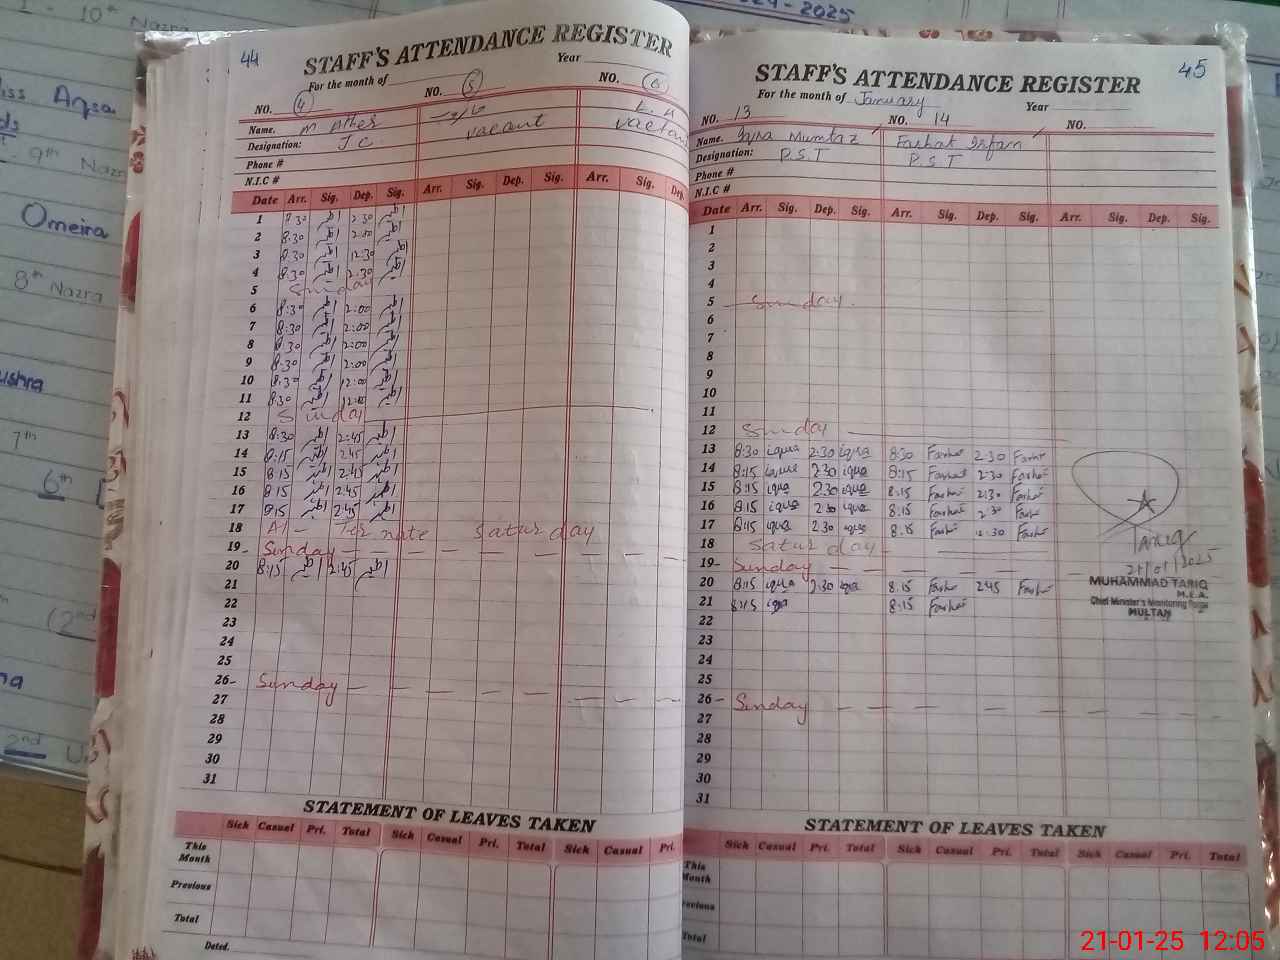 1 - 10th Nazra
2024-2025
iss Aqsa
9th Nazra
Omeira
8th Nazra
ushra
7th
6th
(2nd
na
2nd
44
STAFF'S ATTENDANCE REGISTER
For the month of Year
NO. 4 NO. 5 NO. 6
Name. M Ather
Designation: J.C. vacant
Phone #
N.I.C #
Date Arr. Sig. Dep. Sig. Arr. Sig. Dep. Sig. Arr. Sig. Dep.
1 7:30 2:30
2 8:30 2:00
3 8:30 12:30
4 8:30 2:30
5 Sunday
6 8:30 2:00
7 8:30 2:00
8 8:30 2:00
9 8:30 2:00
10 8:30 12:00
11 8:30
12 Sunday
13 8:30 2:45
14 8:15 2:45
15 8:15 2:45
16 8:15 2:45
17 8:15 2:45
18 Al - Ter nate Saturday
19 - Sunday
20 8:15 2:45
21
22
23
24
25
26 - Sunday
27
28
29
30
31
STATEMENT OF LEAVES TAKEN
Sick Casual Pri. Total Sick Casual Pri. Total Sick Casual Pri.
This Month
Previous
Total
Dated.
45
STAFF'S ATTENDANCE REGISTER
For the month of January Year
NO. 13 NO. 14 NO.
Name. Iqra Mumtaz Farhat Irfan
Designation: P.S.T P.S.T
Phone #
N.I.C #
Date Arr. Sig. Dep. Sig. Arr. Sig. Dep. Sig. Arr. Sig. Dep. Sig.
1
2
3
4
5 Sunday
6
7
8
9
10
11
12 Sunday
13 8:30 iqra 2:30 iqra 8:30 Farhat 2:30 Farhat
14 8:15 iqra 2:30 iqra 8:15 Farhat 2:30 Farhat
15 8:15 iqra 2:30 iqra 8:15 Farhat 2:30 Farhat
16 8:15 iqra 2:30 iqra 8:15 Farhat 2:30 Farhat
17 8:15 iqra 2:30 iqra 8:15 Farhat 12:30 Farhat
18 Saturday
19 - Sunday
20 8:15 iqra 2:30 iqra 8:15 Farhat 2:45 Farhat
21 8:15 iqra 8:15 Farhat
22
23
24
25
26 - Sunday
27
28
29
30
31
Tariq
21/01/2025
MUHAMMAD TARIQ
M.E.A.
Chief Minister's Monitoring Force
MULTAN
STATEMENT OF LEAVES TAKEN
Sick Casual Pri. Total Sick Casual Pri. Total Sick Casual Pri. Total
This Month
revious
Total
21-01-25 12:05